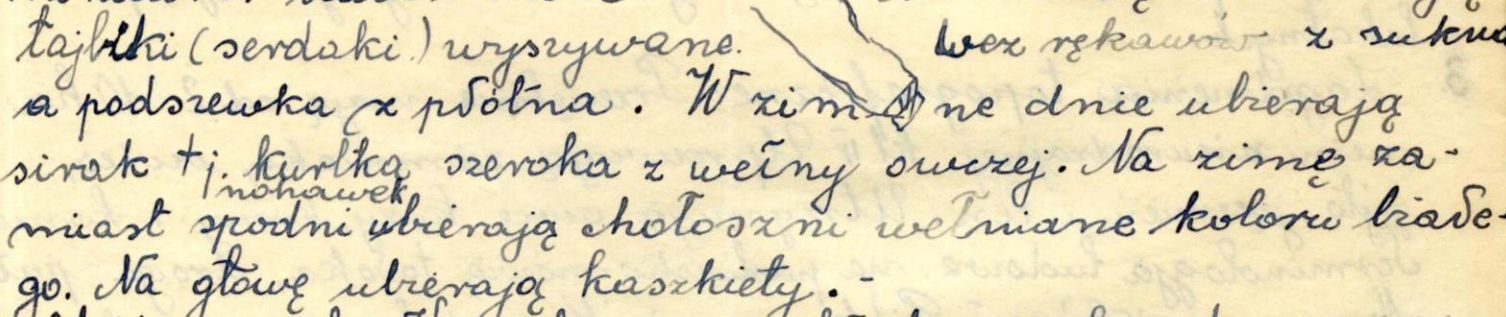 łajbiki (serdaki) wyszywane. bez rękawów z sukna
a podszewka z płótna. W zimne dnie ubierają
sirak tj. kurtka szeroka z wełny owczej. Na zimę za-
nohawek
miast spodni ubierają chołoszni wełniane koloru białe-
go. Na głowę ubierają kaszkiety.-